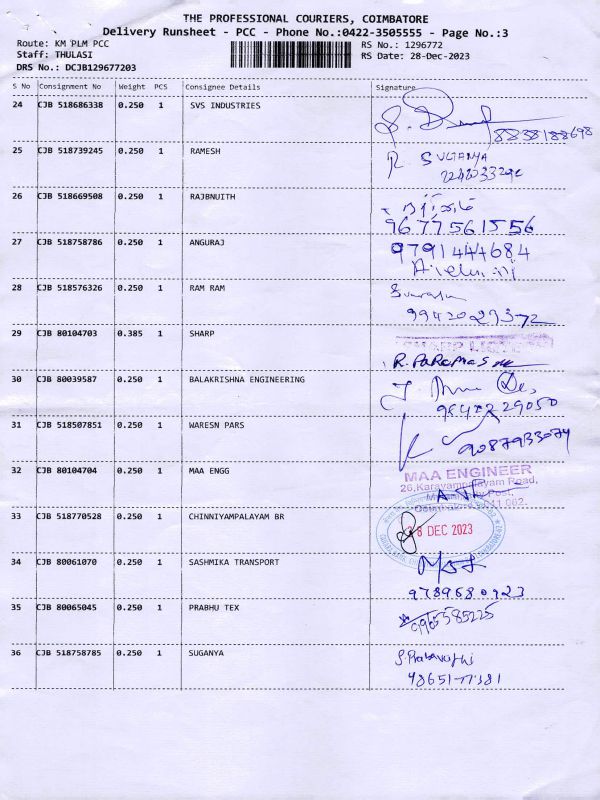 THE PROFESSIONAL COURIERS, COIMBATORE
Delivery Runsheet - PCC - Phone No.:0422-3505555 - Page No.:3
Route: KM PLM PCC RS No.: 1296772
Staff: THULASI RS Date: 28-Dec-2023
DRS No.: DCJB129677203
S No Consignment No Weight PCS Consignee Details Signature
24 CJB 518686338 0.250 1 SVS INDUSTRIES
8838188698
25 CJB 518739245 0.250 1 RAMESH
R SUGANYA
26 CJB 518669508 0.250 1 RAJBNUITH
9677561556
27 CJB 518758786 0.250 1 ANGURAJ 9791444684
28 CJB 518576326 0.250 1 RAM RAM
29 CJB 80104703 0.385 1 SHARP
R. PARAMAS
30 CJB 80039587 0.250 1 BALAKRISHNA ENGINEERING
31 CJB 518507851 0.250 1 WARESN PARS
9087933074
32 CJB 80104704 0.250 1 MAA ENGG MAA ENGINEER
26,Karavampalayam Road,
Post,
33 CJB 518770528 0.250 1 CHINNIYAMPALAYAM BR
8 DEC 2023
34 CJB 80061070 0.250 1 SASHMIKA TRANSPORT
9789680923
35 CJB 80065045 0.250 1 PRABHU TEX
36 CJB 518758785 0.250 1 SUGANYA